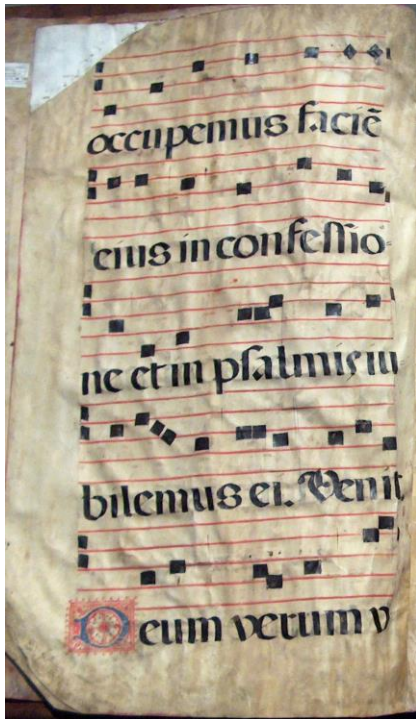 occupemus faciē
eius in confessio
ne et in psalmis iu
bilemus ei. Venit
Deum verum v